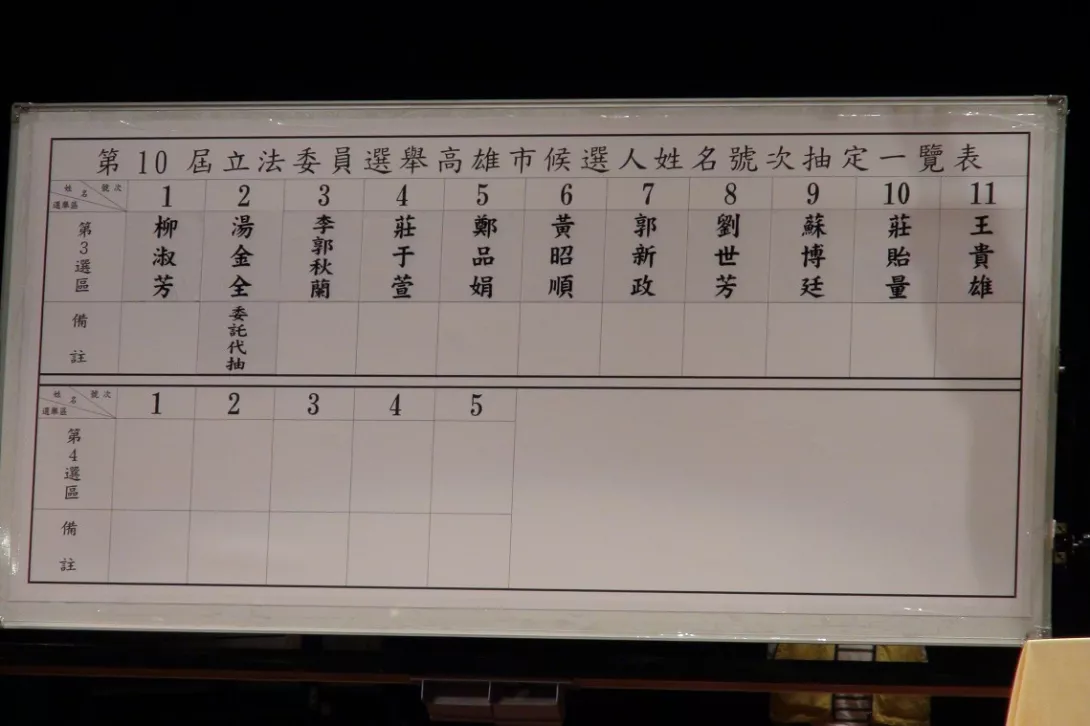 第10屆立法委員選舉高雄市候選人姓名號次抽定一覽表
姓名 號次 選舉區 1 2 3 4 5 6 7 8 9 10 11
第3選區 柳淑芳 湯金全 李郭秋蘭 莊于萱 鄭品娟 黃昭順 郭新政 劉世芳 蘇博廷 莊貽量 王貴雄
備註 委託代抽
姓名 號次 選舉區 1 2 3 4 5
第4選區
備註